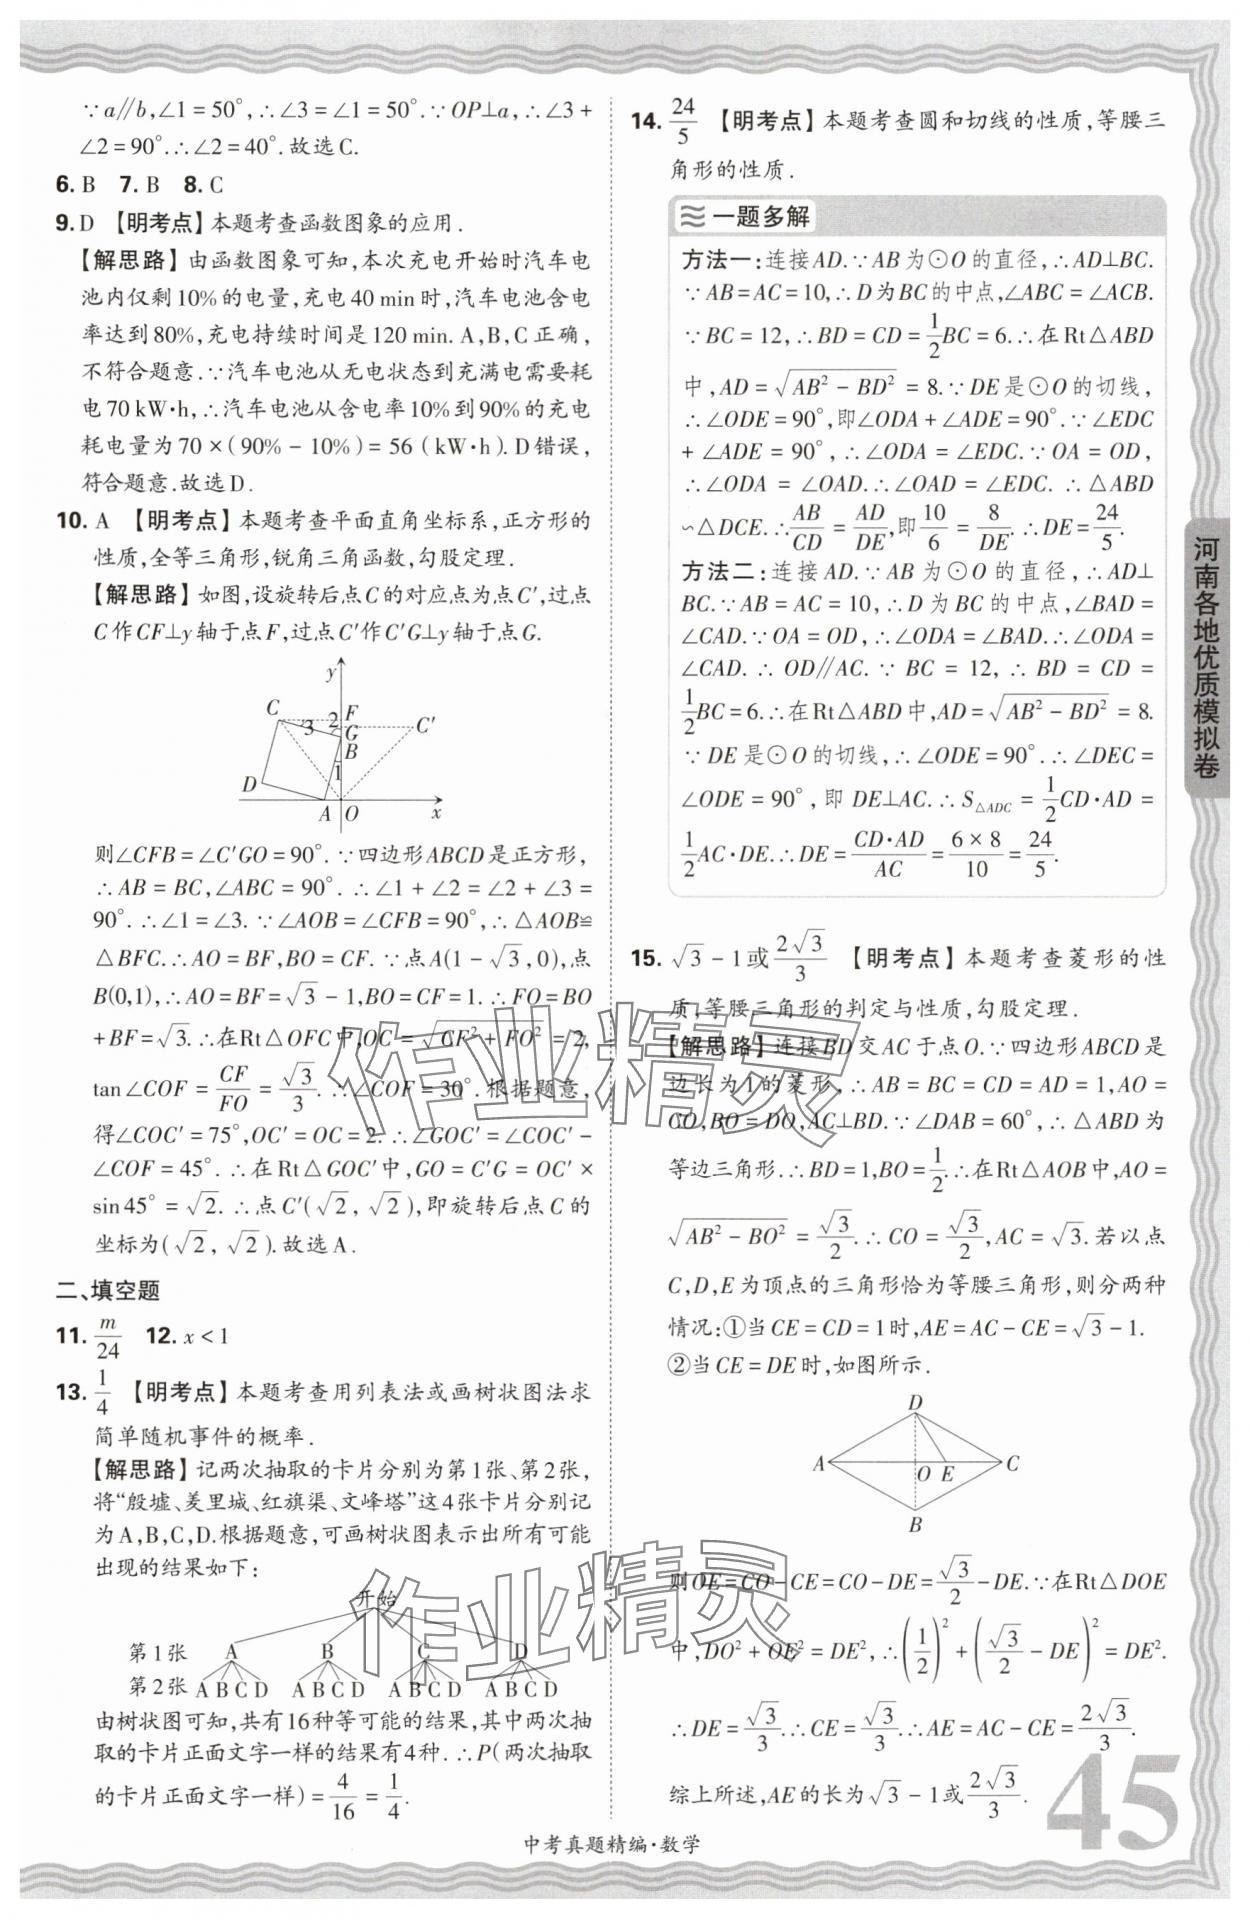 ∵a∥b,∠1=50°,∴∠3=∠1=50°.∵OP⊥a,∴∠3+
∠2=90°.∴∠2=40°.故选C.
6. B 7. B 8. C
9. D 【明考点】本题考查函数图象的应用.
【解思路】由函数图象可知,本次充电开始时汽车电
池内仅剩10%的电量,充电40 min时,汽车电池含电
率达到80%,充电持续时间是120 min. A,B,C正确,
不符合题意.∵汽车电池从无电状态到充满电需要耗
电70 kW·h,∴汽车电池从含电率10%到90%的充电
耗电量为70×(90%-10%)=56(kW·h).D错误,
符合题意.故选D.
10. A 【明考点】本题考查平面直角坐标系,正方形的
性质,全等三角形,锐角三角函数,勾股定理.
【解思路】如图,设旋转后点C的对应点为点C′,过点
C作CF⊥y轴于点F,过点C′作C′G⊥y轴于点G.
y
C 3 2 F
G C′
B
D 1
A O x
则∠CFB=∠C′GO=90°.∵四边形ABCD是正方形,
∴AB=BC,∠ABC=90°.∴∠1+∠2=∠2+∠3=
90°.∴∠1=∠3.∵∠AOB=∠CFB=90°,∴△AOB≌
△BFC.∴AO=BF,BO=CF.∵点A(1-√3,0),点
B(0,1),∴AO=BF=√3-1,BO=CF=1.∴FO=BO
+BF=√3.∴在Rt△OFC中,OC=√(CF²+FO²)=2,
tan∠COF=CF/FO=√3/3.∴∠COF=30°.根据题意,
得∠COC′=75°,OC′=OC=2.∴∠GOC′=∠COC′-
∠COF=45°.∴在Rt△GOC′中,GO=C′G=OC′×
sin45°=√2.∴点C′(√2,√2),即旋转后点C的
坐标为(√2,√2).故选A.
二、填空题
11. m/24 12. x<1
13. 1/4 【明考点】本题考查用列表法或画树状图法求
简单随机事件的概率.
【解思路】记两次抽取的卡片分别为第1张、第2张,
将“殷墟、羑里城、红旗渠、文峰塔”这4张卡片分别记
为A,B,C,D.根据题意,可画树状图表示出所有可能
出现的结果如下:
开始
第1张 A B C D
第2张 A B C D A B C D A B C D A B C D
由树状图可知,共有16种等可能的结果,其中两次抽
取的卡片正面文字一样的结果有4种.∴P(两次抽取
的卡片正面文字一样)=4/16=1/4.
14. 24/5 【明考点】本题考查圆和切线的性质,等腰三
角形的性质.
一题多解
方法一:连接AD.∵AB为⊙O的直径,∴AD⊥BC.
∵AB=AC=10,∴D为BC的中点,∠ABC=∠ACB.
∵BC=12,∴BD=CD=1/2BC=6.∴在Rt△ABD
中,AD=√(AB²-BD²)=8.∵DE是⊙O的切线,
∴∠ODE=90°,即∠ODA+∠ADE=90°.∵∠EDC
+∠ADE=90°,∴∠ODA=∠EDC.∵OA=OD,
∴∠ODA=∠OAD.∴∠OAD=∠EDC.∴△ABD
∽△DCE.∴AB/CD=AD/DE,即10/6=8/DE.∴DE=24/5.
方法二:连接AD.∵AB为⊙O的直径,∴AD⊥
BC.∵AB=AC=10,∴D为BC的中点,∠BAD=
∠CAD.∵OA=OD,∴∠ODA=∠BAD.∴∠ODA=
∠CAD.∴OD∥AC.∵BC=12,∴BD=CD=
1/2BC=6.∴在Rt△ABD中,AD=√(AB²-BD²)=8.
∵DE是⊙O的切线,∴∠ODE=90°.∴∠DEC=
∠ODE=90°,即DE⊥AC.∴S△ADC=1/2CD·AD=
1/2AC·DE.∴DE=CD·AD/AC=6×8/10=24/5.
15. √3-1或2√3/3 【明考点】本题考查菱形的性
质,等腰三角形的判定与性质,勾股定理.
【解思路】连接BD交AC于点O.∵四边形ABCD是
边长为1的菱形,∴AB=BC=CD=AD=1,AO=
CO,BO=DO,AC⊥BD.∵∠DAB=60°,∴△ABD为
等边三角形.∴BD=1,BO=1/2.∴在Rt△AOB中,AO=
√(AB²-BO²)=√3/2.∴CO=√3/2,AC=√3.若以点
C,D,E为顶点的三角形恰为等腰三角形,则分两种
情况:①当CE=CD=1时,AE=AC-CE=√3-1.
②当CE=DE时,如图所示.
D
A O E C
B
则OE=CO-CE=CO-DE=√3/2-DE.∵在Rt△DOE
中,DO²+OE²=DE²,∴(1/2)²+(√3/2-DE)²=DE².
∴DE=√3/3.∴CE=√3/3.∴AE=AC-CE=2√3/3.
综上所述,AE的长为√3-1或2√3/3.
河南各地优质模拟卷
45
中考真题精编·数学
作业精灵
作业精灵